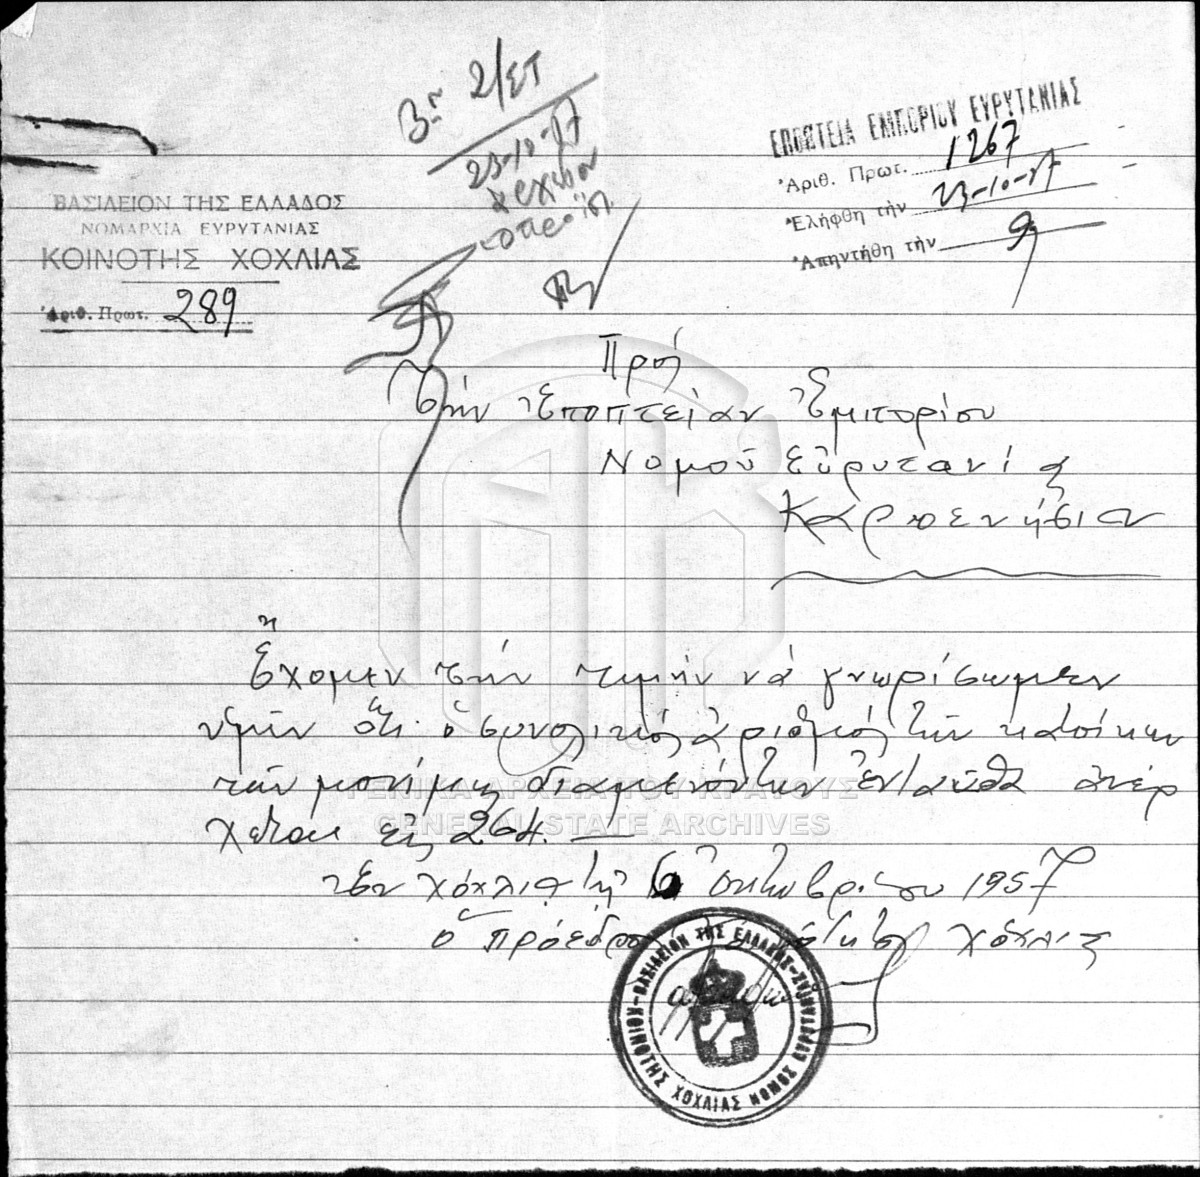 Βη 2/ΣΤ
23-10-57
ΕΠΟΠΤΕΙΑ ΕΜΠΟΡΙΟΥ ΕΥΡΥΤΑΝΙΑΣ
Ἀριθ. Πρωτ. 1267
Ἐλήφθη τὴν 23-10-57
Ἀπηντήθη τὴν
ΒΑΣΙΛΕΙΟΝ ΤΗΣ ΕΛΛΑΔΟΣ
ΝΟΜΑΡΧΙΑ ΕΥΡΥΤΑΝΙΑΣ
ΚΟΙΝΟΤΗΣ ΧΟΧΛΙΑΣ
Ἀριθ. Πρωτ. 289
Πρός
Τὴν Ἐποπτείαν Ἐμπορίου
Νομοῦ Εὐρυτανίας
Καρπενήσιον
Ἔχομεν τὴν τιμὴν νὰ γνωρίσωμεν
ὑμῖν ὅτι ὁ συνολικός ἀριθμός τῶν κατοίκων
τῶν μονίμως διαμενόντων ἐνταῦθα ἀνέρ
χεται εἰς 264.
Ἐν Χόχλια τῇ 6 Ὀκτωβρίου 1957
Ὁ πρόεδρος Κοινότητος Χόχλιας
ΒΑΣΙΛΕΙΟΝ ΤΗΣ ΕΛΛΑΔΟΣ-ΝΟΜΟΣ ΕΥΡΥΤΑΝΙΑΣ
ΚΟΙΝΟΤΗΣ ΧΟΧΛΙΑΣ
ΓΕΝΙΚΑ ΑΡΧΕΙΑ ΤΟΥ ΚΡΑΤΟΥΣ
GENERAL STATE ARCHIVES